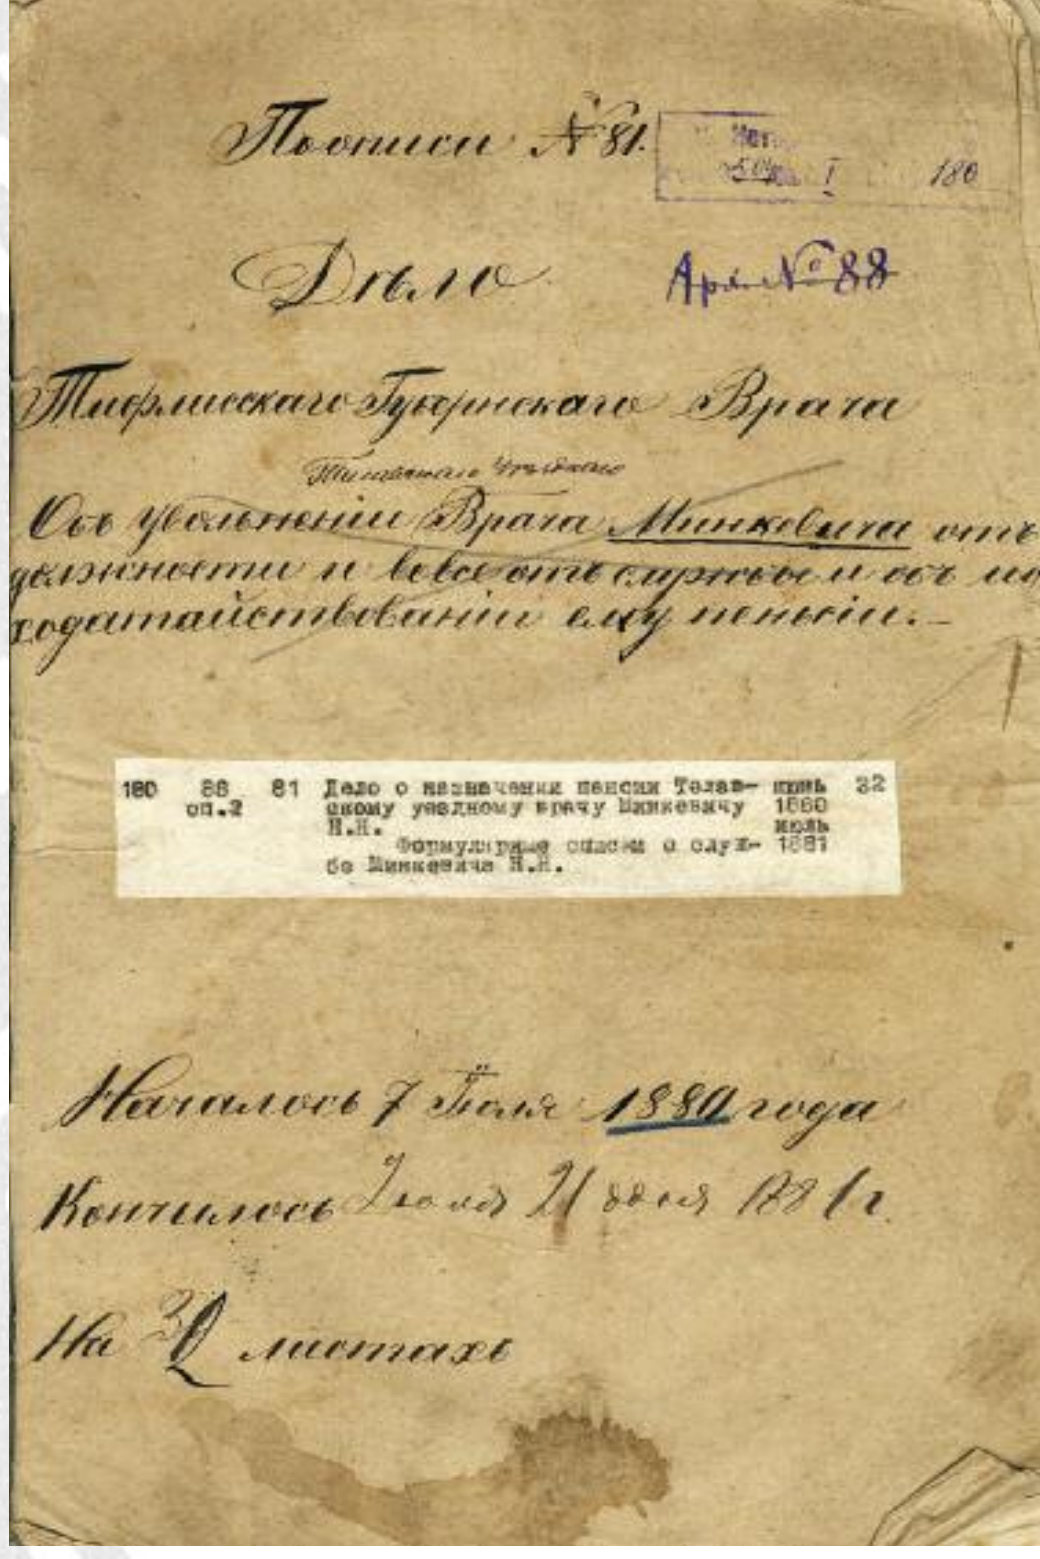 По описи № 81.
180
Дѣло
Арх. № 88
Тифлисскаго Губернскаго Врача
Телавскаго Уѣзднаго
Объ увольненіи Врача Минкевича отъ
должности и вовсе отъ службы и объ ис
ходатайствованіи ему пенсіи.-
180 88 81 Дело о назначении пенсии Телав- июнь 32
оп.2 скому уездному врачу Минкевичу 1880
Н.Н. июль
Формулярные списки о служ- 1881
бе Минкевича Н.Н.
Началось 7 Іюля 1880 года
Кончилось Июля 21 дня 1881 г.
На 32 листахъ